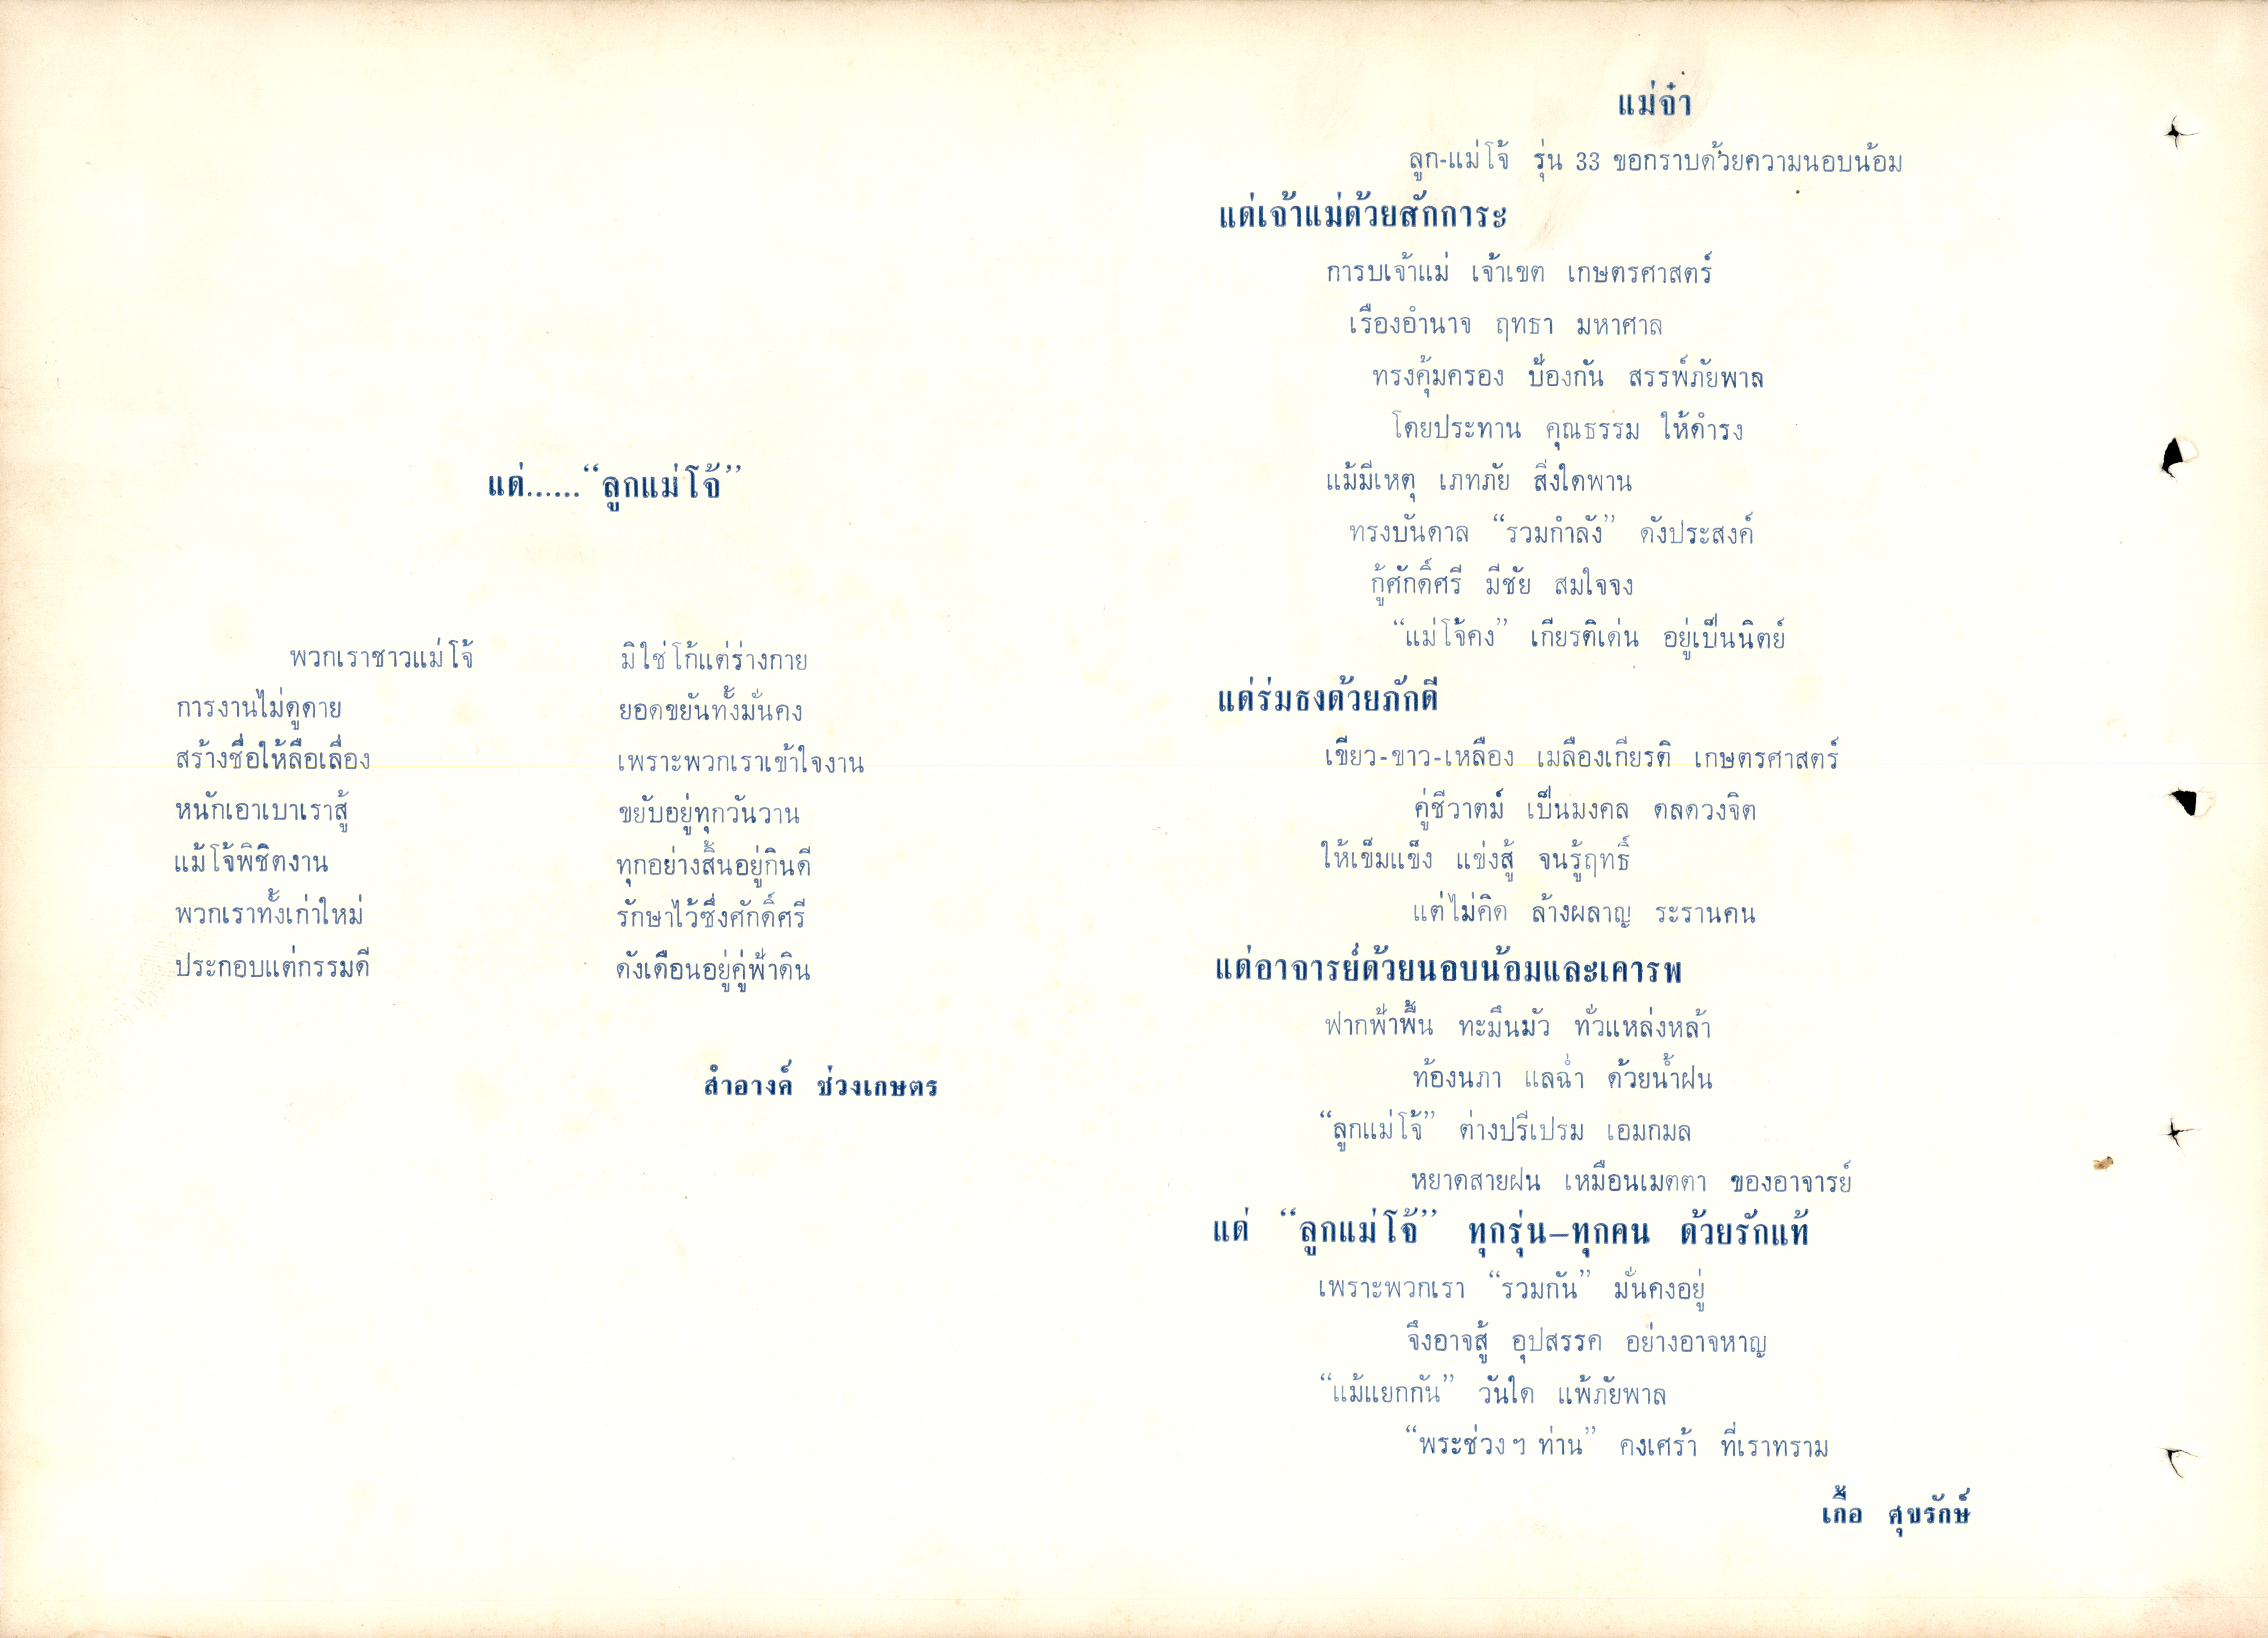 แด่......“ลูกแม่โจ้”
พวกเราชาวแม่โจ้ มิใช่โก้แต่ร่างกาย
การงานไม่ดูดาย ยอดขยันทั้งมั่นคง
สร้างชื่อให้ลือเลื่อง เพราะพวกเราเข้าใจงาน
หนักเอาเบาเราสู้ ขยับอยู่ทุกวันวาน
แม้โจ้พิชิตงาน ทุกอย่างสิ้นอยู่กินดี
พวกเราทั้งเก่าใหม่ รักษาไว้ซึ่งศักดิ์ศรี
ประกอบแต่กรรมดี ดังเดือนอยู่คู่ฟ้าดิน
สำอางค์ ช่วงเกษตร
แม่จ๋า
ลูก-แม่โจ้ รุ่น 33 ขอกราบด้วยความนอบน้อม
แด่เจ้าแม่ด้วยสักการะ
การบเจ้าแม่ เจ้าเขต เกษตรศาสตร์
เรืองอำนาจ ฤทธา มหาศาล
ทรงคุ้มครอง ป้องกัน สรรพ์ภัยพาล
โดยประทาน คุณธรรม ให้ดำรง
แม้มีเหตุ เภทภัย สิ่งใดพาน
ทรงบันดาล “รวมกำลัง” ดังประสงค์
กู้ศักดิ์ศรี มีชัย สมใจจง
“แม่โจ้คง” เกียรติเด่น อยู่เป็นนิตย์
แด่ร่มธงด้วยภักดี
เขียว-ขาว-เหลือง เมลืองเกียรติ เกษตรศาสตร์
คู่ชีวาตม์ เป็นมงคล ดลดวงจิต
ให้เข็มแข็ง แข่งสู้ จนรู้ฤทธิ์
แต่ไม่คิด ล้างผลาญ ระรานคน
แด่อาจารย์ด้วยนอบน้อมและเคารพ
ฟากฟ้าพื้น ทะมึนมัว ทั่วแหล่งหล้า
ท้องนภา แลฉ่ำ ด้วยน้ำฝน
“ลูกแม่โจ้” ต่างปรีเปรม เอมกมล
หยาดสายฝน เหมือนเมตตา ของอาจารย์
แด่ “ลูกแม่โจ้” ทุกรุ่น–ทุกคน ด้วยรักแท้
เพราะพวกเรา “รวมกัน” มั่นคงอยู่
จึงอาจสู้ อุปสรรค อย่างอาจหาญ
“แม้แยกกัน” วันใด แพ้ภัยพาล
“พระช่วงฯ ท่าน” คงเศร้า ที่เราทราม
เกื้อ ศุขรักษ์